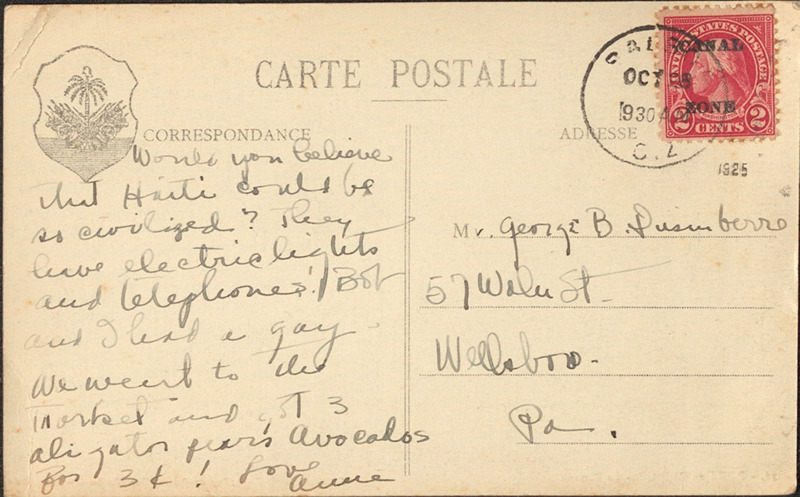 CARTE POSTALE
CORRESPONDANCE
Would you believe
that Haiti could be
so civilized? They
have electric lights
and telephones! Bob
and I had a gay
We went to the
market and got 3
aligator pears Avocados
for 3¢! Love
Anne
UNITED STATES POSTAGE
CANAL
ZONE
2 CENTS 2
OCT
1930
C.Z.
1925
ADRESSE
Mr. George B. Dusinberre
57 Waln St.
Wellsboro.
Pa.